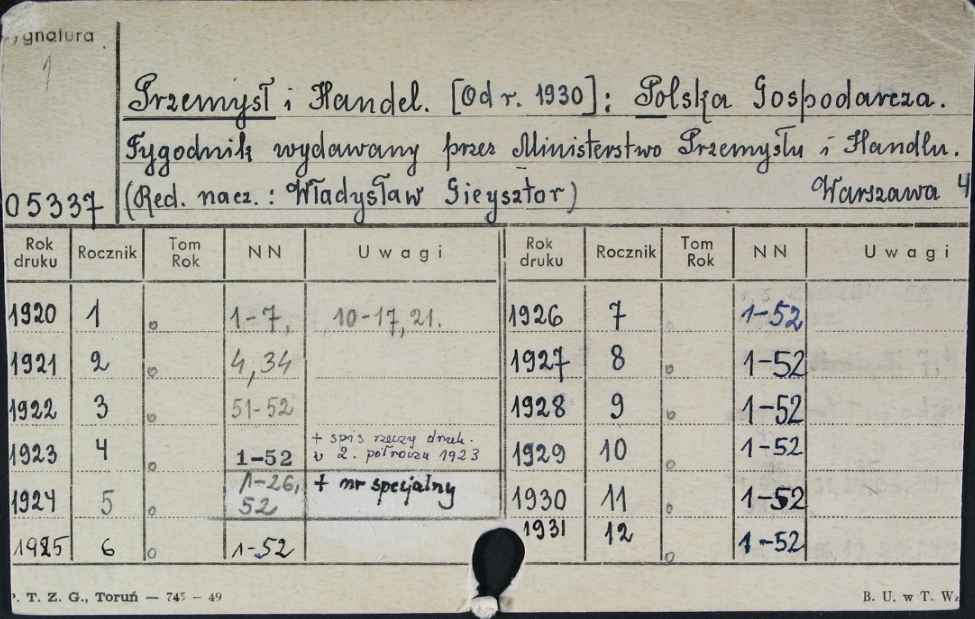 ygnatura
1
Przemysł i Handel. [Od r. 1930]: Polska Gospodarcza.
Tygodnik wydawany przez Ministerstwo Przemysłu i Handlu.
05337 (Red. nacz.: Władysław Gieysztor) Warszawa 4
Rok druku Rocznik Tom Rok NN Uwagi Rok druku Rocznik Tom Rok NN Uwagi
1920 1 1-7, 10-17, 21. 1926 7 1-52
1921 2 4, 34 1927 8 1-52
1922 3 51-52 1928 9 1-52
1923 4 1-52 + spis rzeczy druk. v 2. półroczu 1923 1929 10 1-52
1924 5 1-26, 52 + nr specjalny 1930 11 1-52
1925 6 1-52 1931 12 1-52
P. T. Z. G., Toruń — 745 — 49 B. U. w T. W